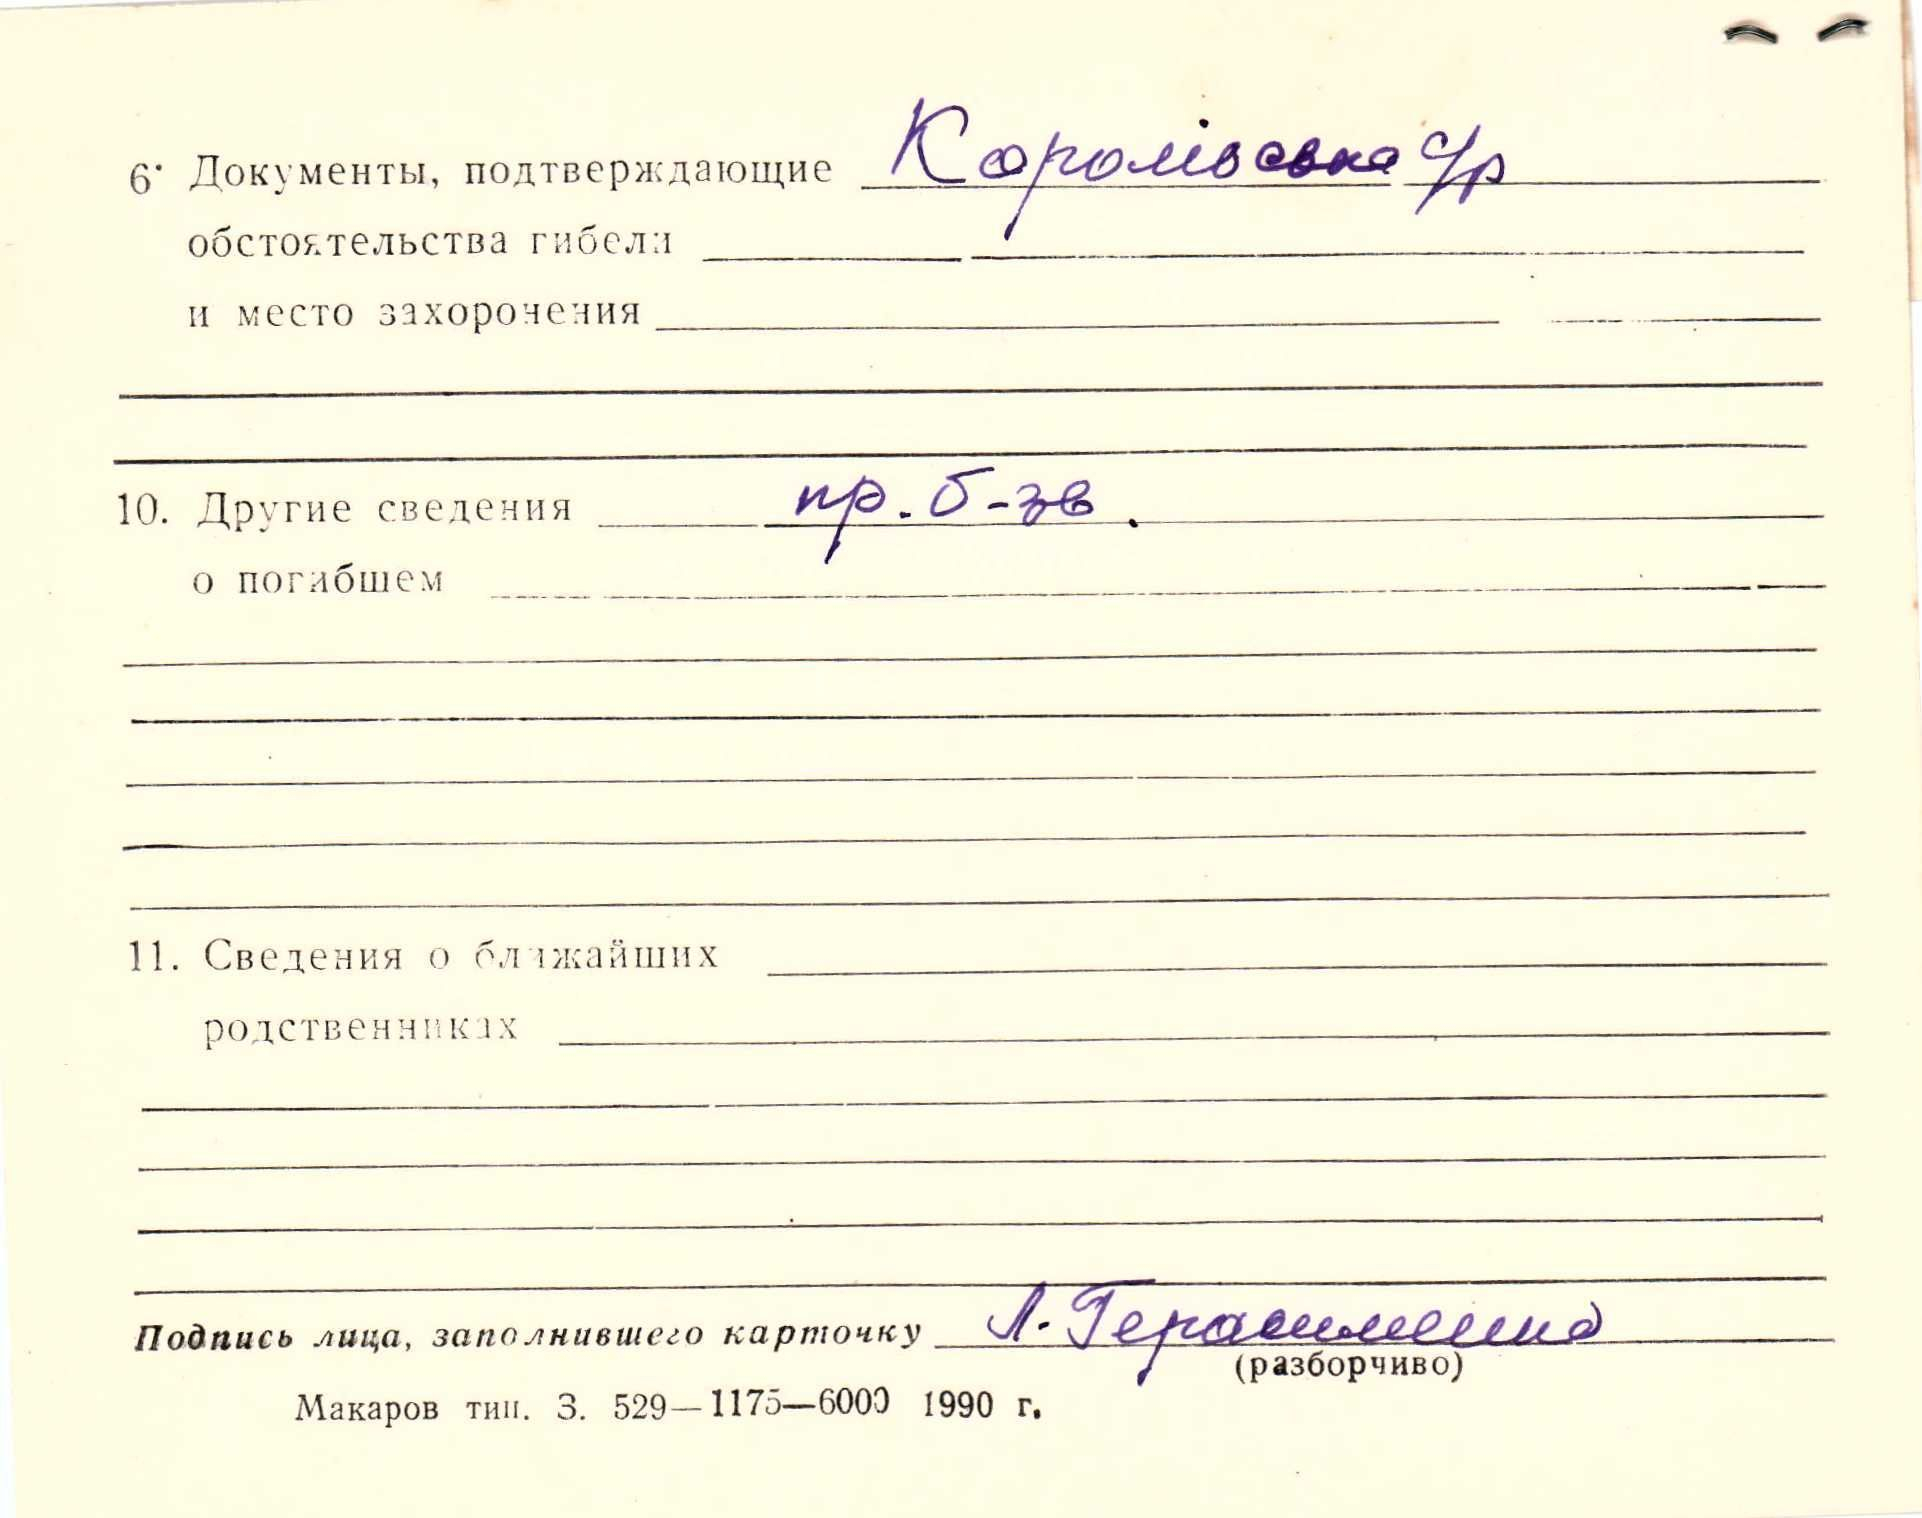 6. Документы, подтверждающие Королівська с/р
обстоятельства гибели
и место захоронения
10. Другие сведения пр. б-зв.
о погибшем
11. Сведения о ближайших
родственниках
Подпись лица, заполнившего карточку Л. Герасименко
(разборчиво)
Макаров тип. З. 529—1175—6000 1990 г.